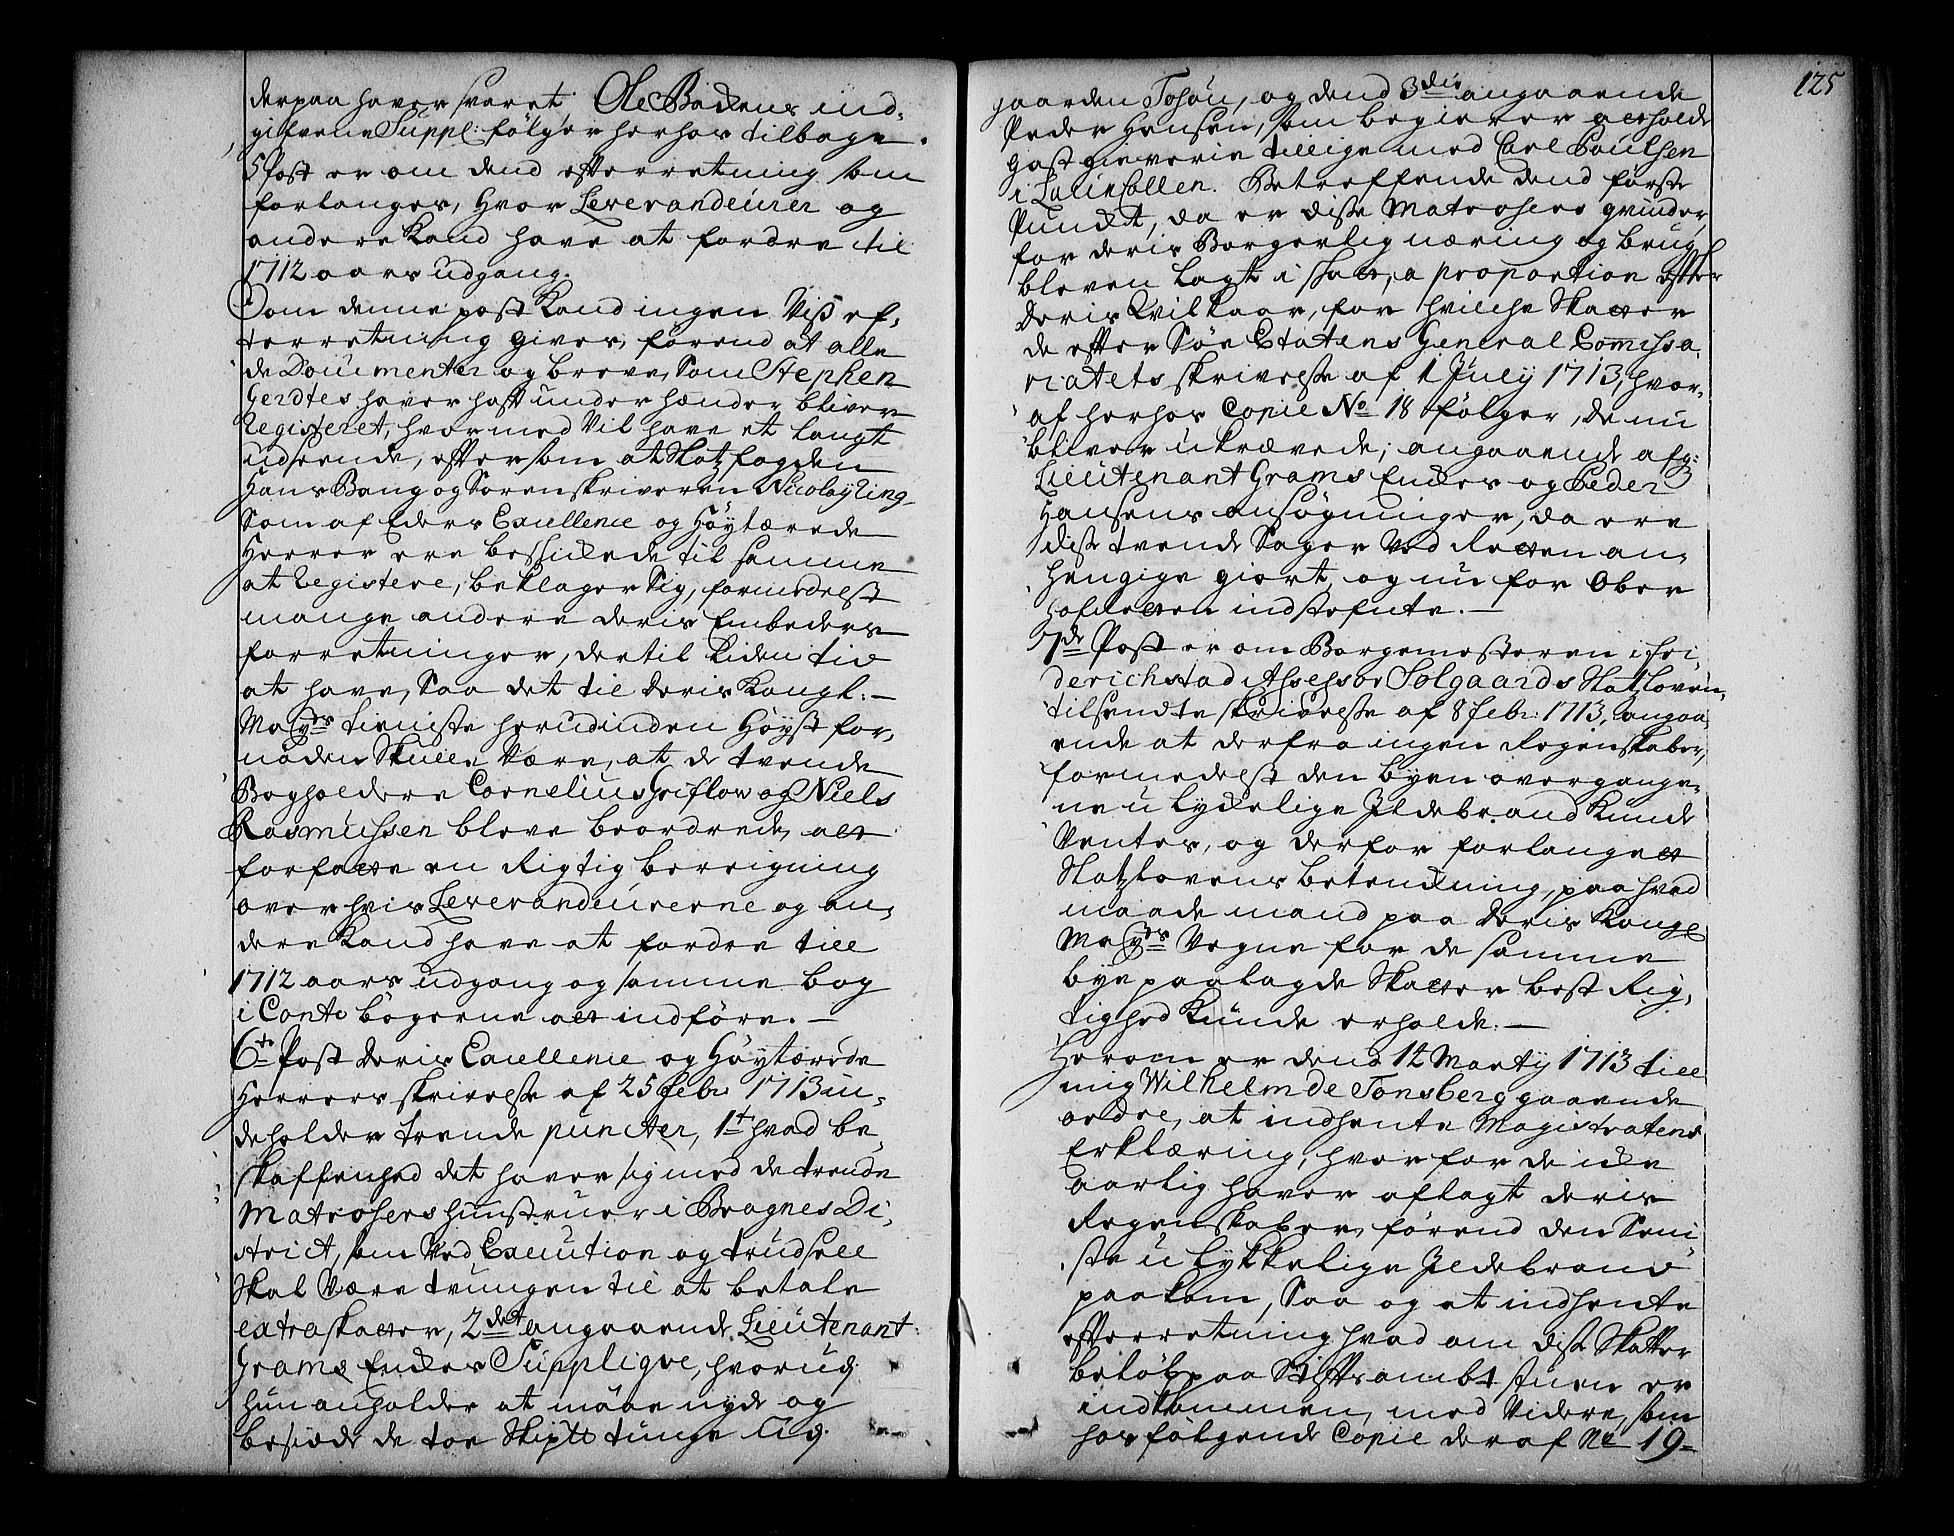 derpaa haver svaret. Ole Backens ind-
gifvene Suppl: følger herhos tilbage.
5 Post er om dend efterretning som
forlanges, hvor Leverandeurer og
andere Kand have at fordre til
1712 aars udgang.
Om denne post Kand ingen Viss ef-
terretning gives, førend at alle
de Documenter og breve, Som Stephen
Gerdtes haver haft under hænder bliver
Registeret, hvormed Vil have et langt
udseende, eftersom at Slotzfogden
Hans Bang og Sorenskriveren Nicolay Ling,
Som af Eders Excellence og Høytærede
Herrer ere beskickede til samme
at Registere, beklager Sig, formedelst
mange andere deris Embeders
forretninger, dertil Liden tid
at have, Saa det til deris Kongl:
Mayts tieniste herudinden Høyst for-
nøden Skulle Være, at de tvende
Bogholdere Cornelius Griflow og Niels
Rasmussen bleve beordrede att
forfatte en Rigtig beregning
over hvis Leverandeurerne og an-
dere Kand have at fordre till
1712 aars udgang og samme bog
i Conto bøgerne att indføre.
6te Post deris Excellence og Høytærede
Herrers skrivelse af 25 febr: 1713 in-
deholder trende puncter, 1t hvad be-
skaffenhed det haver sig med de trende
Matrosers hunstruer i Bragnes Di-
strict, som Ved Execution og trudsell
Skal Være tvungen til at betale
extraskatter, 2det angaaende Lieutenant
Grams Enckes Supplique, hvorud
hun anholder at maae nyde og
besidde de toe Skiptt tunge Lid
125
gaarden Tosøn, og dend 3die angaaende
Peder Hansen, som begierer at erholde
Gastgieverie tillige med Carl Poulsen
i LalinCollen. Betreffende dend første
Punckt, da er disse Matrosers qvinder,
for deris Borgerlig næring og brug
bleven lagt i skat, a proportion efter
deris Vilkaar, for hvilche Skatter
de efter Søe Etatens General Comissa-
riatets skrivelse af 1 July 1713, hvor-
af herhos Copie No 18 følger, de nu
bliver ukrævede; angaaende afg:
Lieutenant Grams Enckes og Peder
Hansens ansøgninger, da ere
disse tvende Sager Ved Retten an-
hengige giort, og nu for Ober
Hofretten indstefnte.
7de Post er om Borgemesteren i Fri-
derichstad Assessor Solgaards Slotzloven
tilsendte skrivelse af 8 febr: 1713, angaa-
ende at derfra ingen Regenskaber,
formedelst den byen overgange-
ne ulyckelige Ildebrand Kunde
Ventes, og derfor forlanget
Slotzlovens betenckning, paa hvad
maade mand paa deris Kongl
Mayts Vegne for de samme
bye paalagde Skatter best Rig-
tighed Kunde erholde.
Herom er dend 14 Marty 1713 till
mig Wilhelm de Tonsberg gaaende
ordre, at indhente Magistratens
Erklæring, hvorfor de icke
aarlig haver aflagt deris
Regenskaber, førend den Seni-
ste ulykkelige Ildebrand
paakom, Saa og at indhente
efterretning hvad om disse Skatter
beløb paa Stiftsambt stuen er
indkommen, med Videre, som
hosfølgende Copie deraf No 19